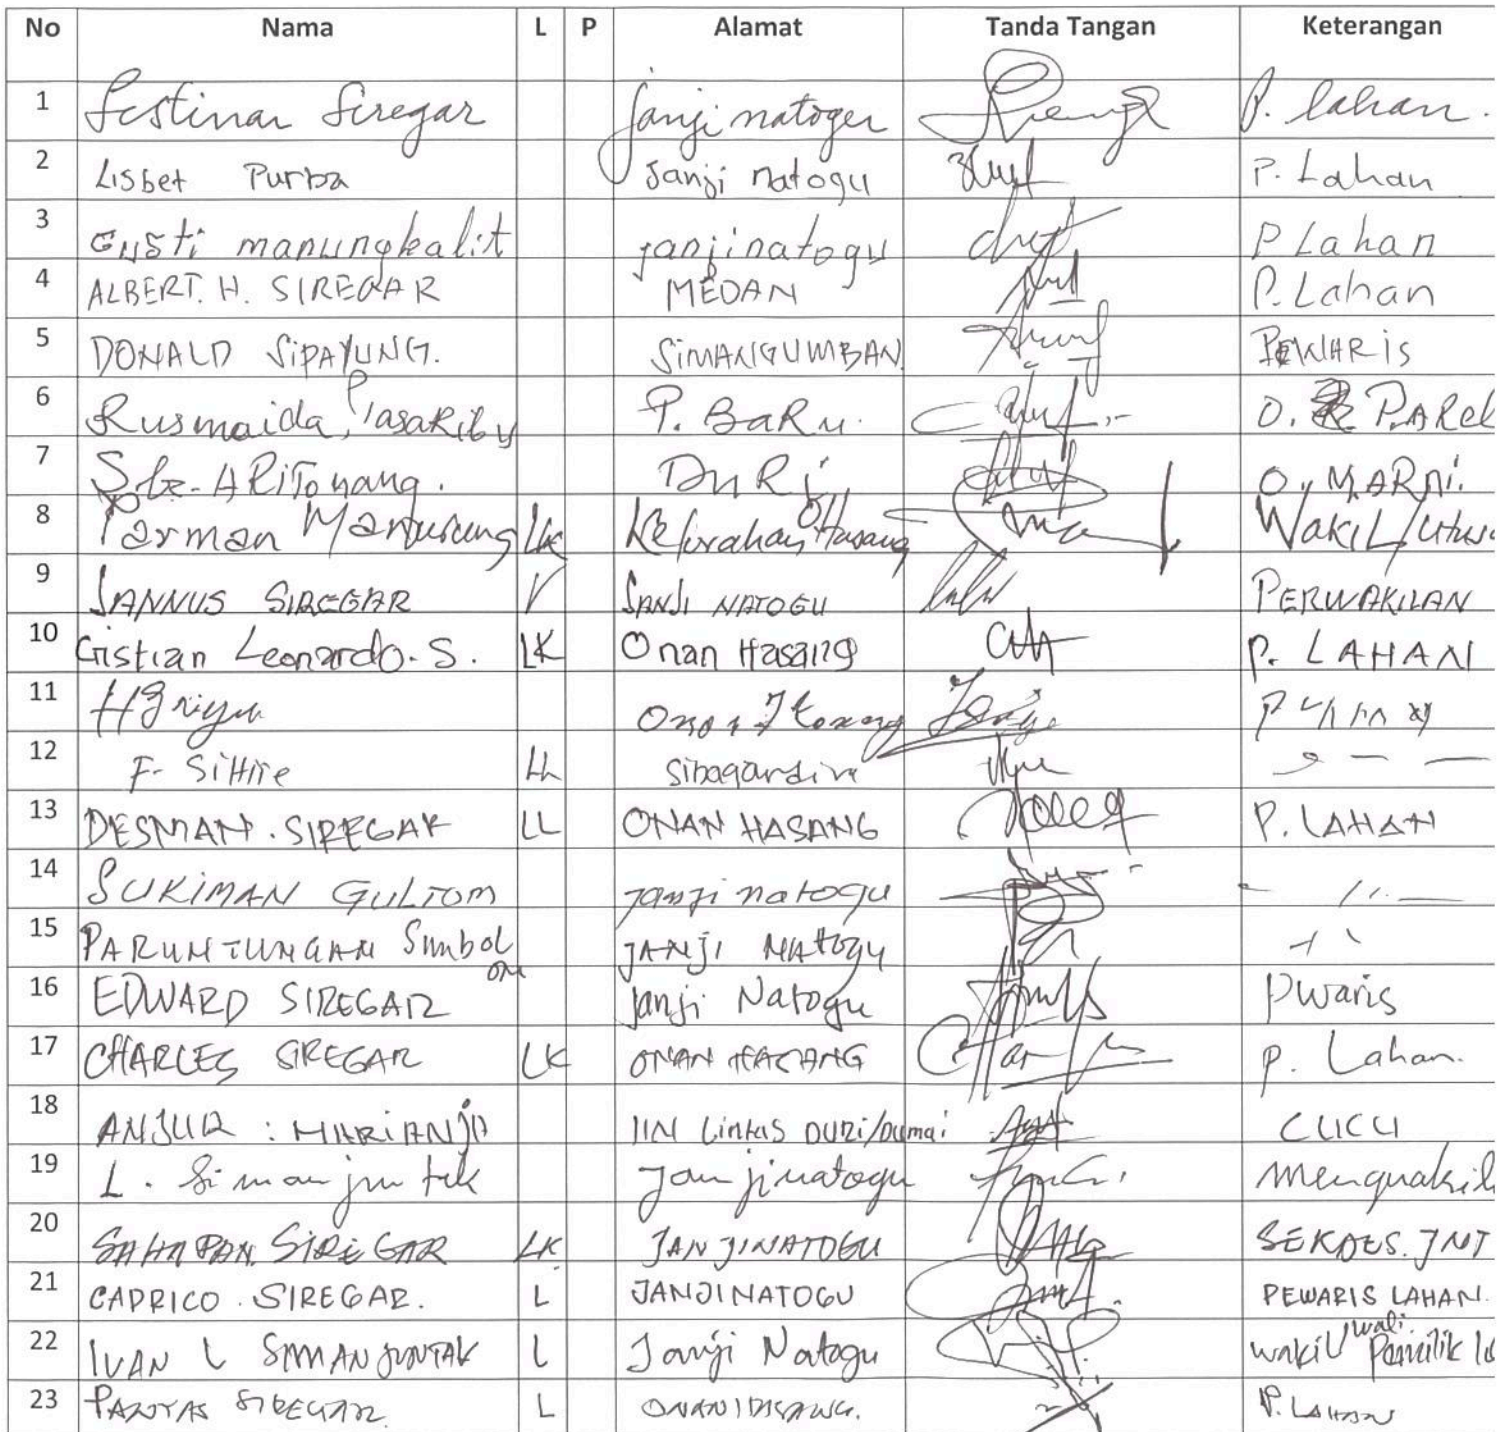 No Nama L P Alamat Tanda Tangan Keterangan
1 Festinar Siregar Janji natogu P. lahan.
2 Lisbet Purba Janji natogu P. Lahan
3 Gusti manungkalit janjinatogu P Lahan
4 ALBERT. H. SIREGAR MEDAN P. Lahan
5 DONALD SIPAYUNG. SIMANGUMBAN PEWARIS
6 Rusmaida Pasaribu P. BaRu. O. PAREl
7 ARiTonang. DuRi O, MARNi.
8 Tarman Manurung Lk Kelurahan O. Hasang Wakil/Utus
9 JANNUS SIREGAR V JANJI NATOGU PERWAKILAN
10 Cristian Leonardo. S. LK Onan Hasang P. LAHAN
11
12 F. Sihite Lk
13 DESMAN. SIREGAR LL ONAN HASANG P. LAHAN
14 SUKIMAN GULTOM janji natogu
15 PARUNTUNGAN Simbolon JANJI NATOGU
16 EDWARD SIREGAR Janji Natogu Pwaris
17 CHARLES SIREGAR LK ONAN HASANG P. Lahan.
18 ANJUR : MARIANJO JlN Lintas DURI/Dumai CUCU
19 L. Simanjuntak Janjinatogu mengwakili
20 SAHAPAN SIREGAR LK JANJINATOGU SEKDES. JNT
21 CAPRICO. SIREGAR. L JANJINATOGU PEWARIS LAHAN.
22 IVAN L SIMANJUNTAK L Janji Natogu wakil wali Pemilik la
23 PANTAS SIREGAR. L ONAN HASANG. P. LAHAN